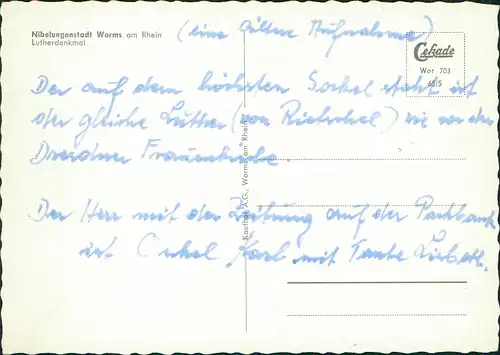 Nibelungenstadt Worms am Rhein
Lutherdenkmal
(eine ältere Aufnahme)
Cekade
Wor 703
65/5
Der auf dem höchsten Sockel steht ist
der gleiche Luther (von Rietschel) wie vor der
Dresdner Frauenkirche.
Kaufhof A.G., Worms am Rhein
Der Herr mit der Zeitung auf der Parkbank
ist Onkel Karl mit Tante Lisbeth.